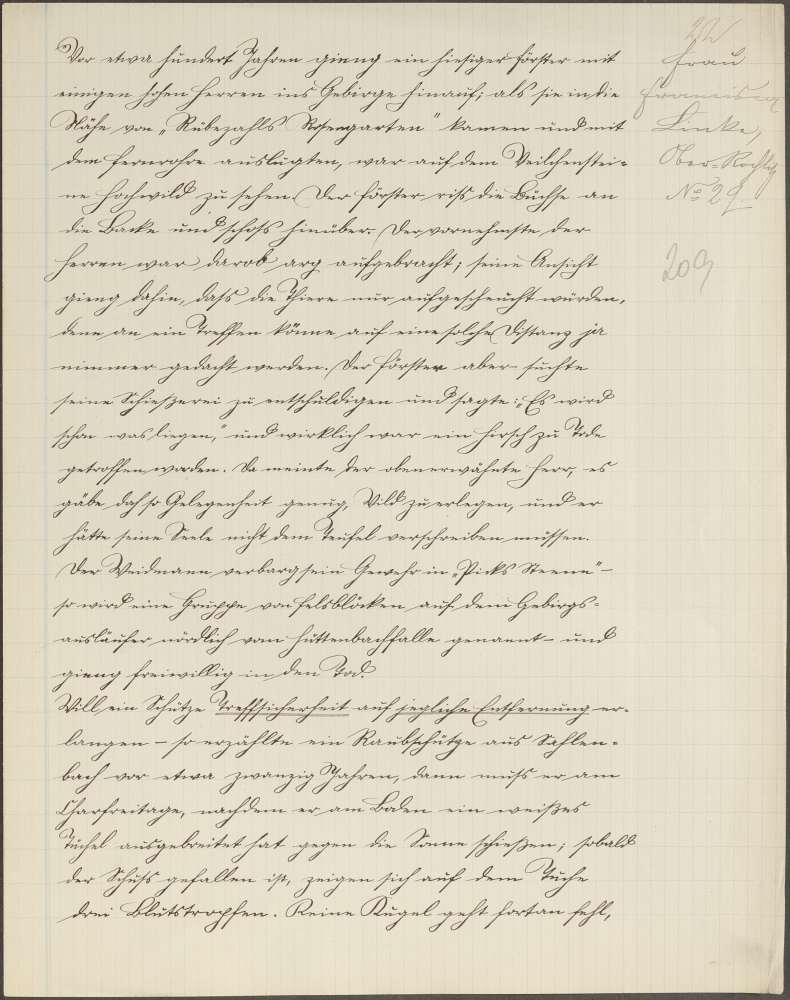 22
Vor etwa hundert Jahren gieng ein hiesiger Förster mit
einigen hohen Herren ins Gebirge hinauf; als sie in die
Nähe von „Rübezahls Rosengarten" kamen und mit
dem Fernrohre auslugten, war auf dem Veilchenstei-
ne Hochwild zu sehen. Der Förster riss die Büchse an
die Backe und schoss hinüber. Der vornehmste der
Herren war darob arg aufgebracht; seine Ansicht
gieng dahin, dass die Thiere nur aufgescheucht würden,
denn an ein Treffen könne auf eine solche Distanz ja
nimmer gedacht werden. Der Förster aber suchte
seine Schießerei zu entschuldigen und sagte: „Es wird
schon was liegen," und wirklich war ein Hirsch zu Tode
getroffen worden. Da meinte der obenerwähnte Herr, es
gäbe doch so Gelegenheit genug, Wild zu erlegen, und er
hätte seine Seele nicht dem Teufel verschreiben müssen.
Der Weidmann verbarg sein Gewehr in „Picks Steene" –
so wird eine Gruppe von Felsblöcken auf dem Gebirgs-
ausläufer nördlich vom Hüttenbachfalle genannt – und
gieng freiwillig in den Tod.
Will ein Schütze Treffsicherheit auf jegliche Entfernung er-
langen – so erzählte ein Raubschütze aus Sahlen-
bach vor etwa zwanzig Jahren, dann muss er am
Charfreitage, nachdem er am Boden ein weißes
Tüchel ausgebreitet hat gegen die Sonne schießen; sobald
der Schuss gefallen ist, zeigen sich auf dem Tuche
drei Blutstropfen. Keine Kugel geht fortan fehl,
Frau
Francisca
Linke,
Ober-Rochlitz
No 29
209